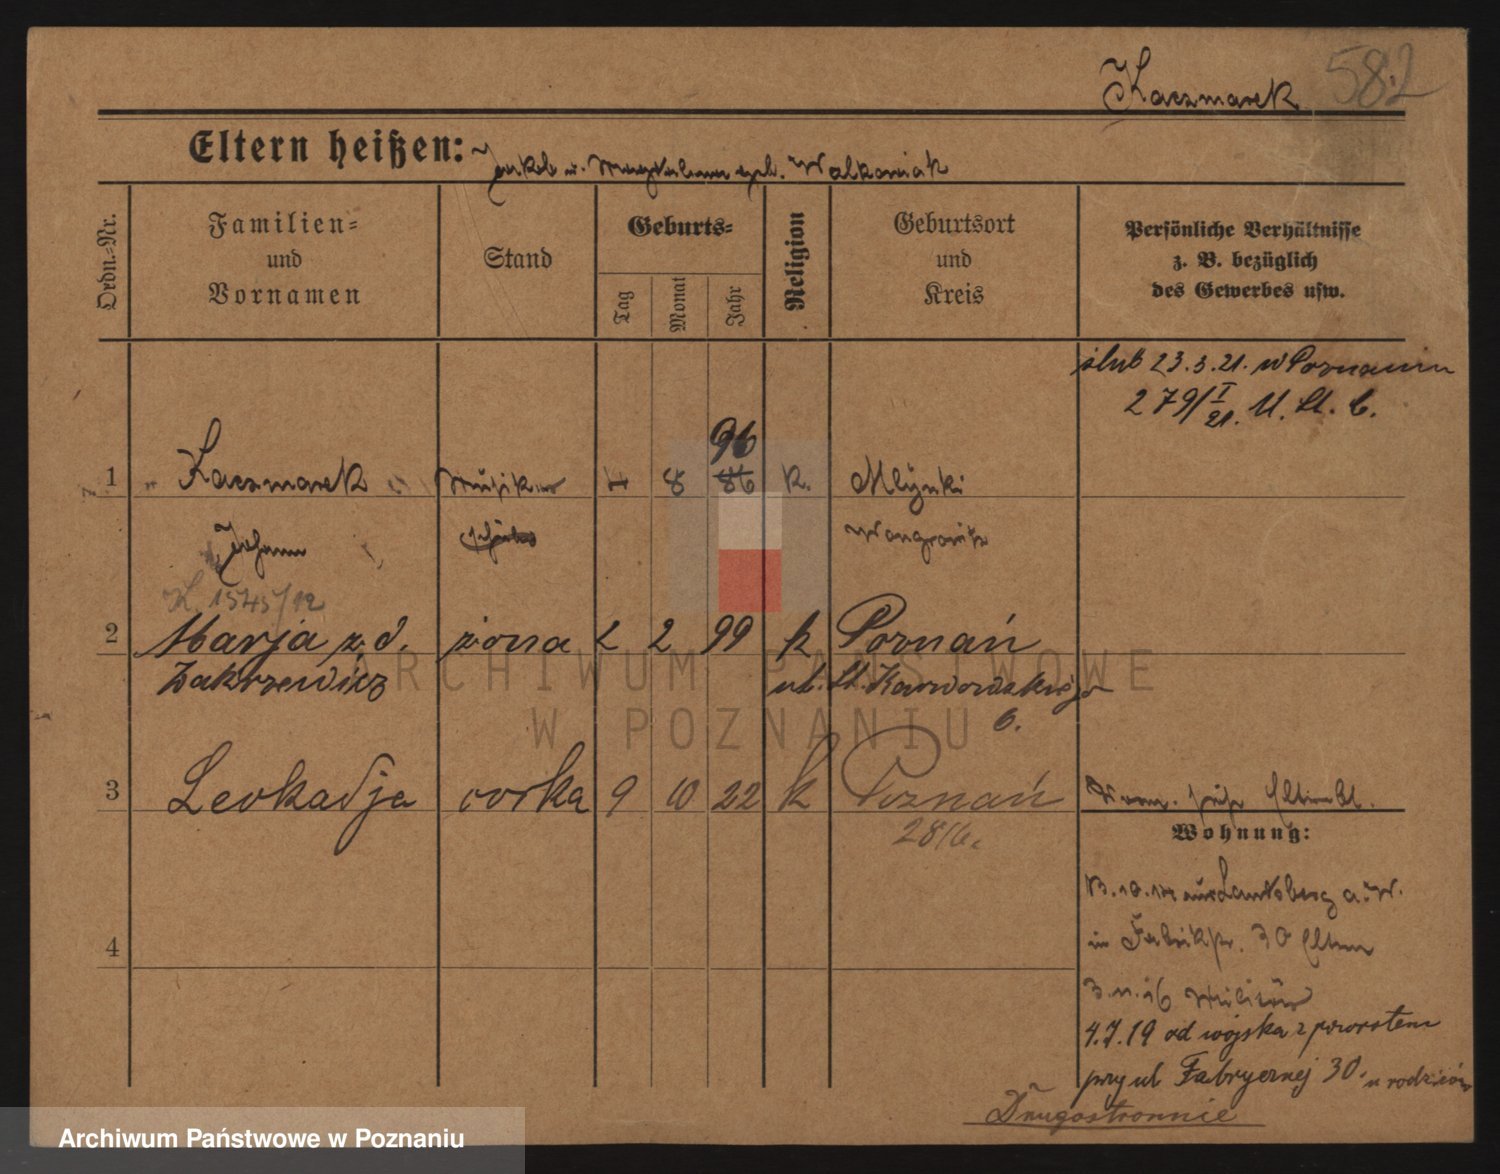 Kaczmarek 582
Eltern heißen: Jakob u. Magdalena geb. Walkowiak
Ordn.-Nr.
Familien-
und
Vornamen
Stand
Geburts-
Tag
Monat
Jahr
Religion
Geburtsort
und
Kreis
Persönliche Verhältnisse
z. B. bezüglich
des Gewerbes usw.
ślub 23.3.21. w Poznaniu
279/I 21. U. St. C.
96
1 Kaczmarek Musiker 4 8 86 K. Mlynki
Johann Wongrowitz
K. 1545/12
2 Marja z d. żona 2 2 99 k Poznań
Zakrzewicz ul. St. Karwowskiego
6.
3 Leokadja córka 9 10 22 k Poznań
2816.
Wohnung:
13.10.14 aus Landsberg a. W.
in Fabrikstr. 30 Eltern
4
3.11.16 Militär
4.7.19 od wojska z powrotem
przy ul Fabrycznej 30. u rodziców
Drugostronnie
ARCHIWUM PAŃSTWOWE
W POZNANIU
Archiwum Państwowe w Poznaniu